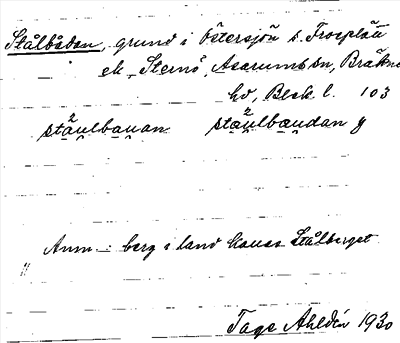 Stålbådan, grund i Östersjön s. Froeplau
ek Sternö, Asarums sn, Bräkne
hd, Blek l. 103
stäulbauan stäulbaudan y
Anm: berg i land kallas Stålberget
Tage Ahldén 1930